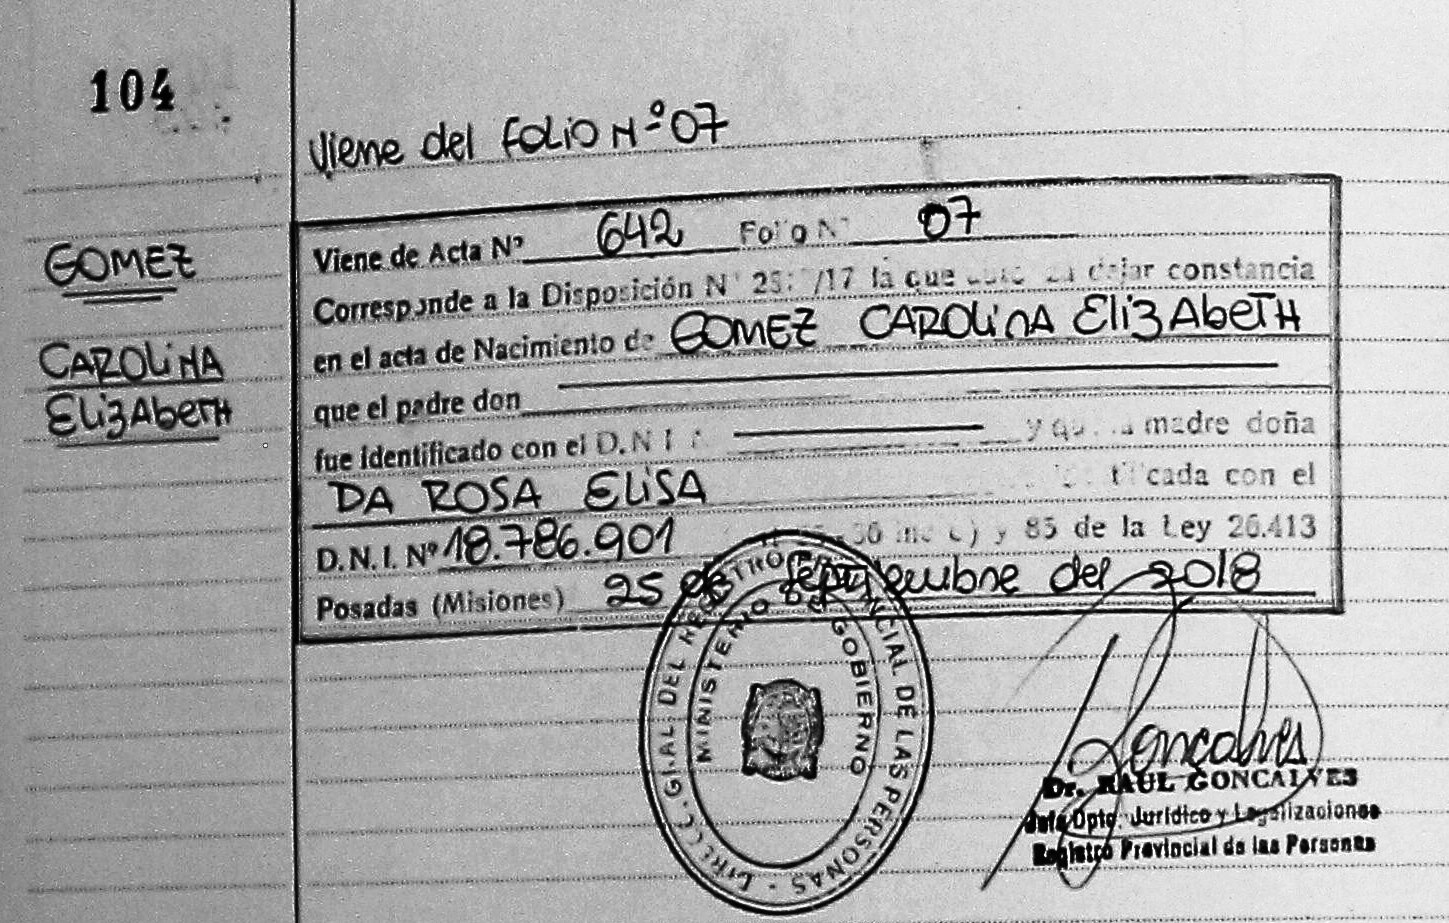 104
Viene del FOLIO Nº 07
GOMEZ
CAROLINA
Eliz AbeTH
Viene de Acta Nº 642 Folio Nº 07
Corresponde a la Disposición Nº /17 la que dejar constancia
en el acta de Nacimiento de GOMEZ CAROLINA Eliz AbeTH
que el padre don
fue identificado con el D.N.I. y que la madre doña
DA ROSA ELISA con el
D.N.I. Nº 18.786.901 y 85 de la Ley 26.413
Posadas (Misiones) 25 de Septiembre del 2018
DIRECC. GRAL. DEL REGISTRO PROVINCIAL DE LAS PERSONAS
MINISTERIO DE GOBIERNO
Goncalves
Dr. RAUL GONCALVES
Jefe Dpto. Jurídico y Legalizaciones
Registro Provincial de las Personas